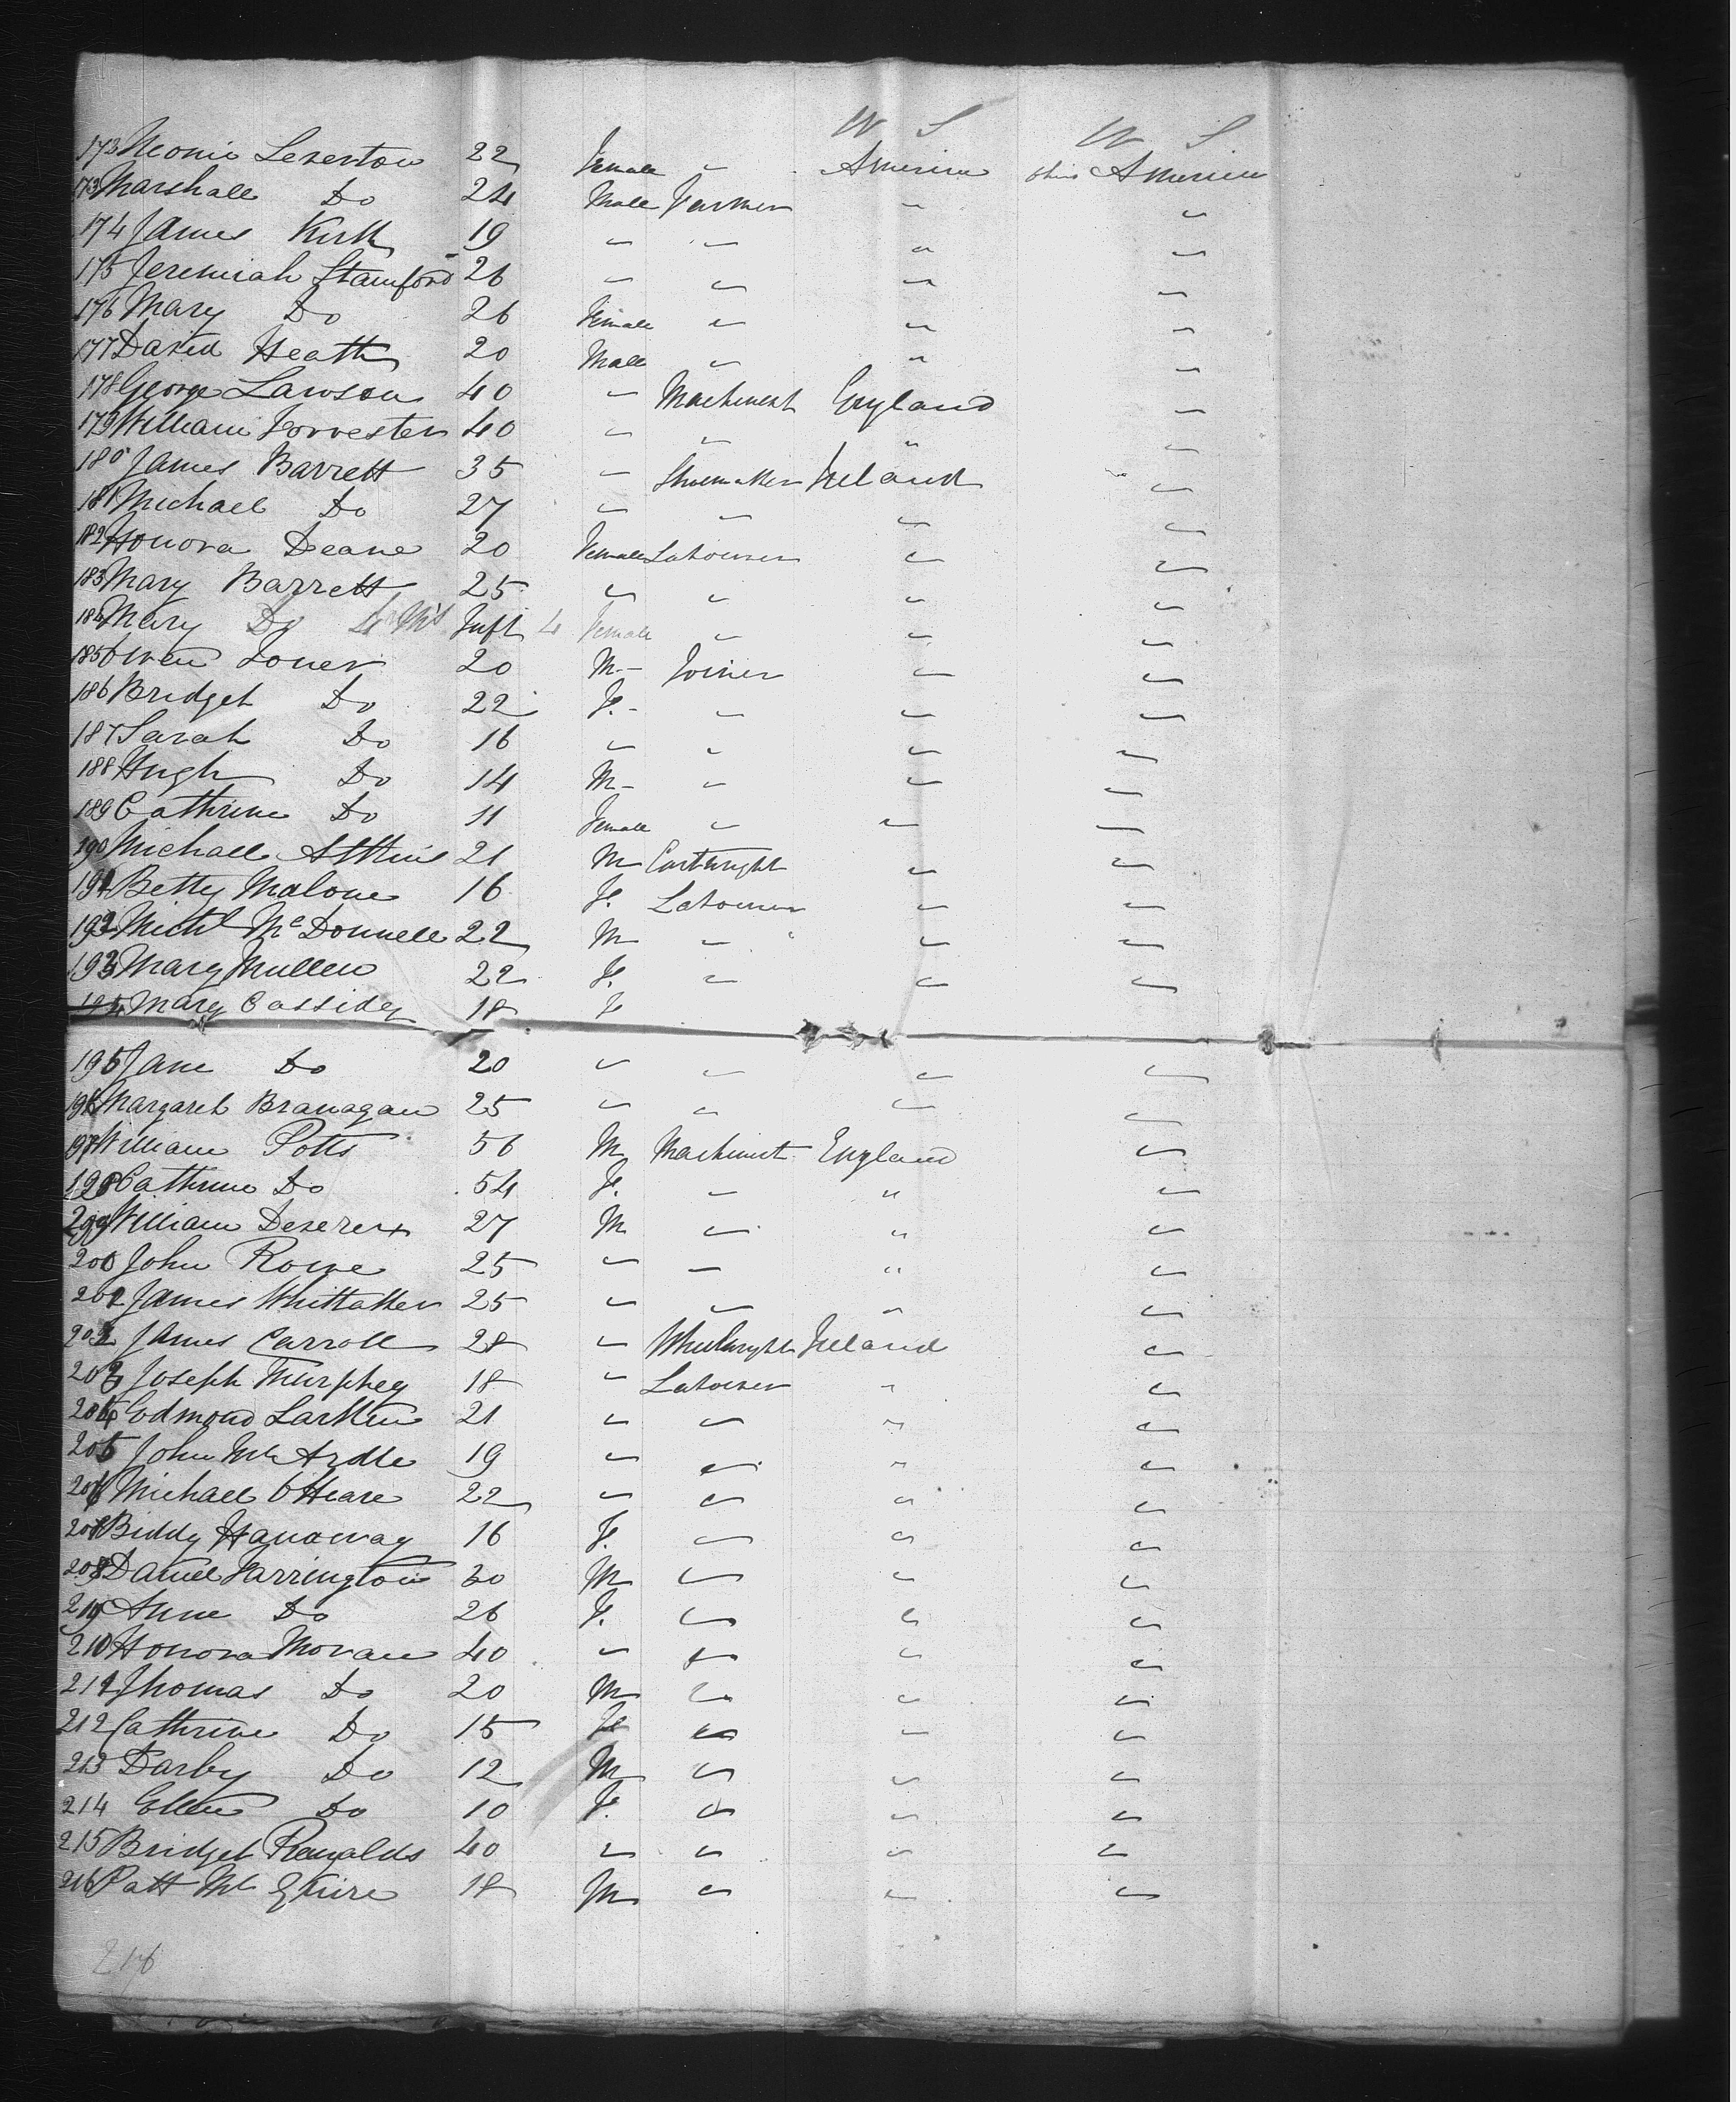 U S U S
172 Neomi Leverton 22 Female " America Ohio America
173 Marshall Do 24 Male Farmer " "
174 James Kirk 19 " " " "
175 Jeremiah Stamford 26 " " " "
176 Mary Do 26 Female " " "
177 David Heath 20 Male " " "
178 George Lawson 40 " Machinest England "
179 William Forrester 40 " " " "
180 James Barrett 35 " Shoemaker Ireland "
181 Michael Do 27 " " " "
182 Honora Deane 20 Female Labourer " "
183 Mary Barrett 25 " " " "
184 Mary Do 4 Mts Inft 4 Female " " "
185 Owen Joner 20 M- Joiner " "
186 Bridget Do 22 F.- " " "
187 Sarah Do 16 " " " "
188 Hugh Do 14 M- " " "
189 Cathrine Do 11 Female " " "
190 Michael Atkins 21 M Cartwright " "
191 Betty Malone 16 F. Labourer " "
192 Michl McDonnell 22 M " " "
193 Mary Mullen 22 F. " " "
194 Mary Cassidy 18 F
195 Jane Do 20 " " " "
196 Margaret Branagan 25 " " " "
197 William Potts 56 M Machinist England "
198 Cathrine Do 54 F. " " "
199 William Deserex 27 M " " "
200 John Rowe 25 " " " "
201 James Whittaker 25 " " " "
202 James Carroll 28 " Wheelwright Ireland "
203 Joseph Murphey 18 " Labourer " "
204 Edmond Larkin 21 " " " "
205 John McArdle 19 " " " "
206 Michael OHeare 22 " " " "
207 Biddy Hanaway 16 F. " " "
208 Daniel Farrington 30 M " " "
209 Anne Do 26 F. " " "
210 Honora Moran 40 " " " "
211 Thomas Do 20 M " " "
212 Cathrine Do 15 F " " "
213 Darby Do 12 M " " "
214 Ellen Do 10 F. " " "
215 Bridget Ranalds 40 " " " "
216 Patt McGuire 18 M " " "
216